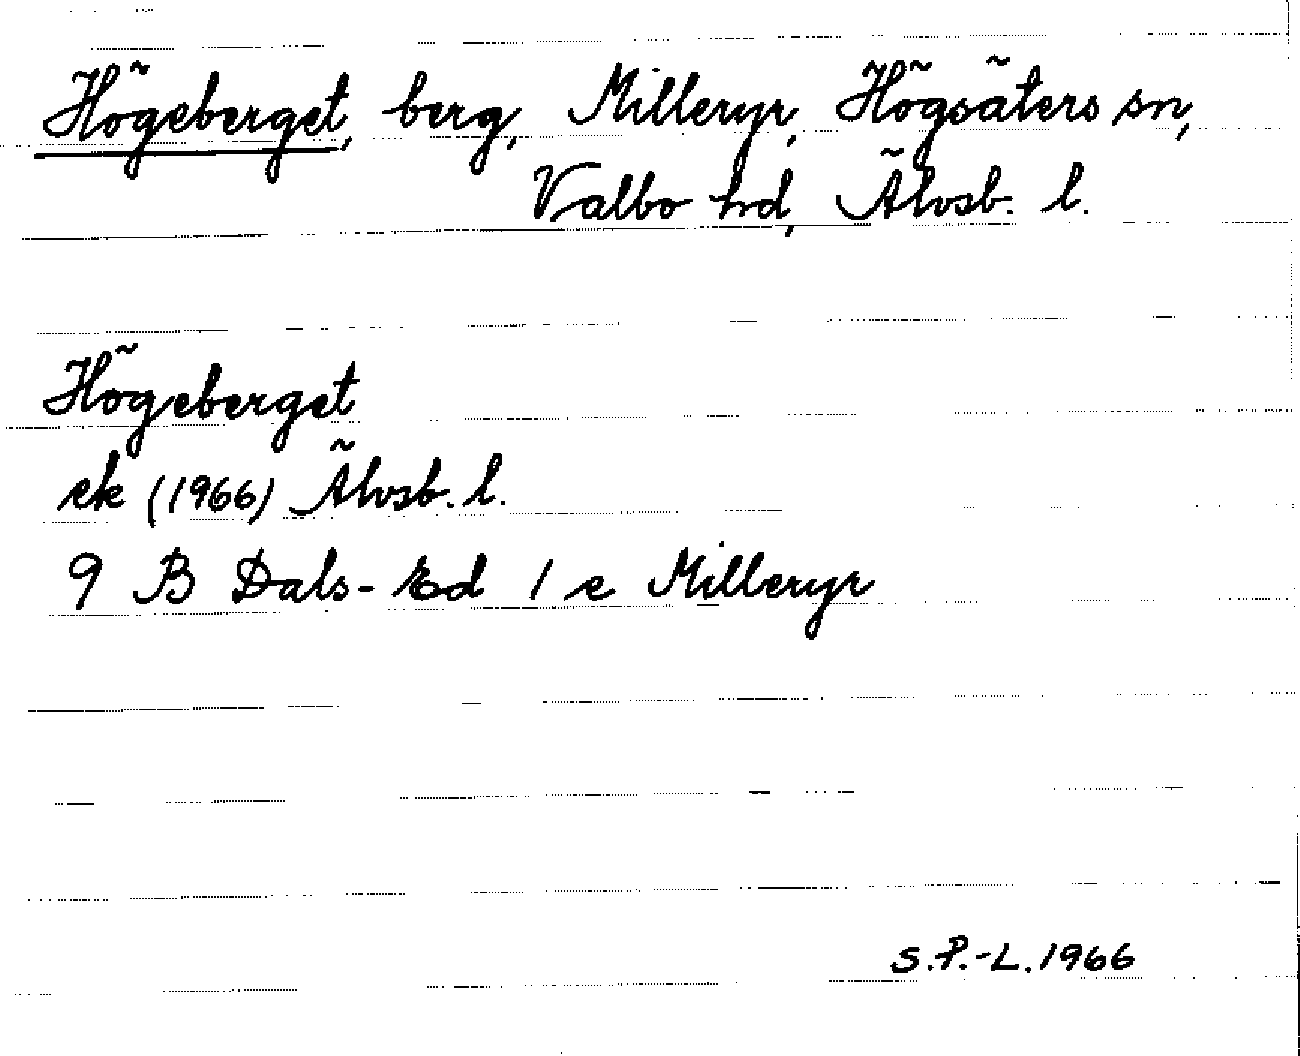 Högeberget, berg, Milleryr, Högsäters sn,
Valbo hd, Älvsb. l.
Högeberget
ek (1966) Älvsb. l.
9 B Dals-Ed 1 e Milleryr
S.P.-L. 1966